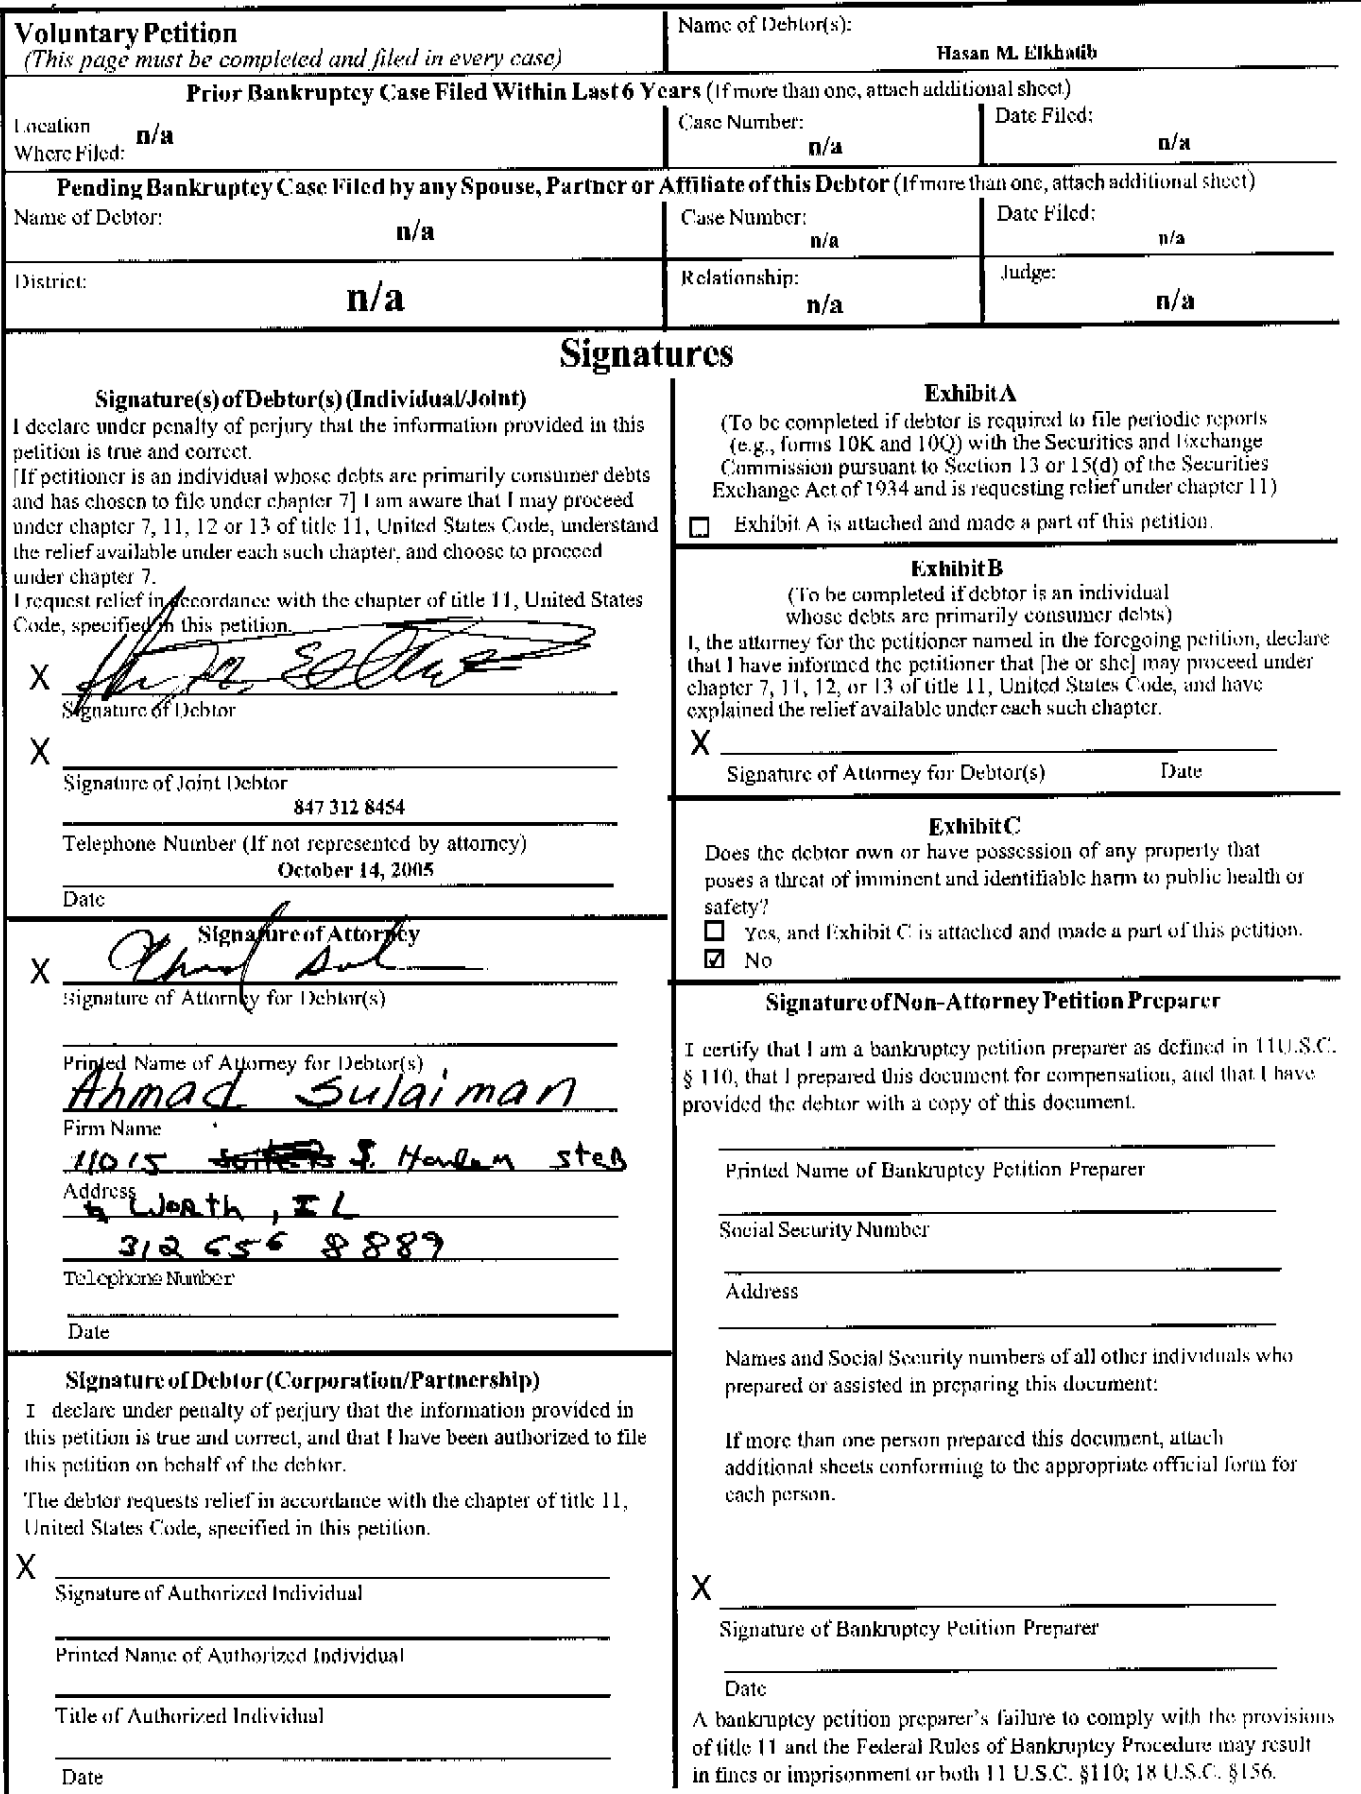 Voluntary Petition
(This page must be completed and filed in every case)
Name of Debtor(s):
Hasan M. Elkhatib
Prior Bankruptcy Case Filed Within Last 6 Years (If more than one, attach additional sheet)
Location
Where Filed:
n/a
Case Number:
n/a
Date Filed:
n/a
Pending Bankruptcy Case Filed by any Spouse, Partner or Affiliate of this Debtor (If more than one, attach additional sheet)
Name of Debtor:
n/a
Case Number:
n/a
Date Filed:
n/a
District:
n/a
Relationship:
n/a
Judge:
n/a
Signatures
Signature(s) of Debtor(s) (Individual/Joint)
I declare under penalty of perjury that the information provided in this
petition is true and correct.
[If petitioner is an individual whose debts are primarily consumer debts
and has chosen to file under chapter 7] I am aware that I may proceed
under chapter 7, 11, 12 or 13 of title 11, United States Code, understand
the relief available under each such chapter, and choose to proceed
under chapter 7.
I request relief in accordance with the chapter of title 11, United States
Code, specified in this petition.
X
Signature of Debtor
X
Signature of Joint Debtor
847 312 8454
Telephone Number (If not represented by attorney)
October 14, 2005
Date
Signature of Attorney
X
Signature of Attorney for Debtor(s)
Printed Name of Attorney for Debtor(s)
Ahmad Sulaiman
Firm Name
11015 S. Harlem Ste B
Address
Worth, IL
312 656 8889
Telephone Number
Date
Signature of Debtor (Corporation/Partnership)
I declare under penalty of perjury that the information provided in
this petition is true and correct, and that I have been authorized to file
this petition on behalf of the debtor.
The debtor requests relief in accordance with the chapter of title 11,
United States Code, specified in this petition.
X
Signature of Authorized Individual
Printed Name of Authorized Individual
Title of Authorized Individual
Date
Exhibit A
(To be completed if debtor is required to file periodic reports
(e.g., forms 10K and 10Q) with the Securities and Exchange
Commission pursuant to Section 13 or 15(d) of the Securities
Exchange Act of 1934 and is requesting relief under chapter 11)
Exhibit A is attached and made a part of this petition.
Exhibit B
(To be completed if debtor is an individual
whose debts are primarily consumer debts)
I, the attorney for the petitioner named in the foregoing petition, declare
that I have informed the petitioner that [he or she] may proceed under
chapter 7, 11, 12, or 13 of title 11, United States Code, and have
explained the relief available under each such chapter.
X
Signature of Attorney for Debtor(s) Date
Exhibit C
Does the debtor own or have possession of any property that
poses a threat of imminent and identifiable harm to public health or
safety?
Yes, and Exhibit C is attached and made a part of this petition.
No
Signature of Non-Attorney Petition Preparer
I certify that I am a bankruptcy petition preparer as defined in 11 U.S.C.
§ 110, that I prepared this document for compensation, and that I have
provided the debtor with a copy of this document.
Printed Name of Bankruptcy Petition Preparer
Social Security Number
Address
Names and Social Security numbers of all other individuals who
prepared or assisted in preparing this document:
If more than one person prepared this document, attach
additional sheets conforming to the appropriate official form for
each person.
X
Signature of Bankruptcy Petition Preparer
Date
A bankruptcy petition preparer's failure to comply with the provisions
of title 11 and the Federal Rules of Bankruptcy Procedure may result
in fines or imprisonment or both 11 U.S.C. §110; 18 U.S.C. §156.